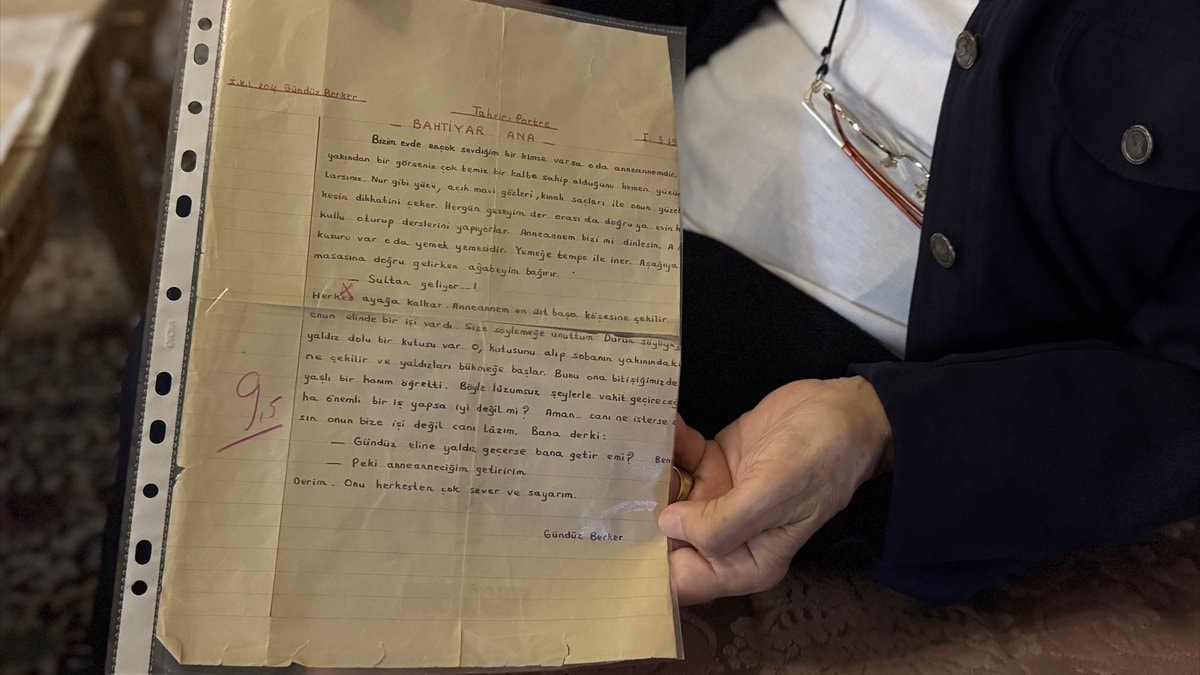 I.K.I. 204 Gündüz Berker
Tahrir: Portre
— BAHTİYAR ANA —
I. 3.19
Bizim evde ençok sevdiğim bir kimse varsa oda anneannemdir.
yakından bir görseniz çok temiz bir kalbe sahip olduğunu hemen yüzün
larsınız. Nur gibi yüzü, açık mavi gözleri, kınalı saçları ile onun güzel
kesin dikkatini çeker. Hergün gezeyim der orası da doğru ya evin
kullu oturup derslerini yapıyorlar. Anneannem bizi mi dinlesin. A
kusuru var o da yemek yemesidir. Yemeğe tempo ile iner. Aşağıya
masasına doğru gelirken ağabeyim bağırır.
— Sultan geliyor—!
Herkes ayağa kalkar. Anneannem en üst başa köşesine çekilir.
onun elinde bir işi vardı. Size söylemeğe unuttum. Durun söyliye
yaldız dolu bir kutusu var. O, kutusunu alıp sobanın yakınındaki
ne çekilir ve yaldızları bükmeğe başlar. Bunu ona bitişiğimizde
yaşlı bir hanım öğretti. Böyle lüzumsuz şeylerle vakit geçireceği
ha önemli bir iş yapsa iyi değil mi? Aman.. canı ne isterse
sin onun bize işi değil canı lâzım. Bana derki:
— Gündüz eline yaldız geçerse bana getir emi? Ben
— Peki anneanneciğim getiririm
Derim. Onu herkesten çok sever ve sayarım.
Gündüz Berker
9,5